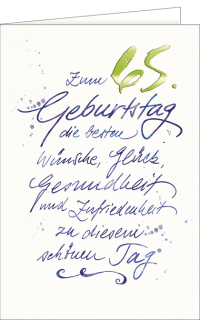 Zum 65.
Geburtstag
die besten
Wünsche, Glück
Gesundheit
und Zufriedenheit
zu diesem
schönen Tag